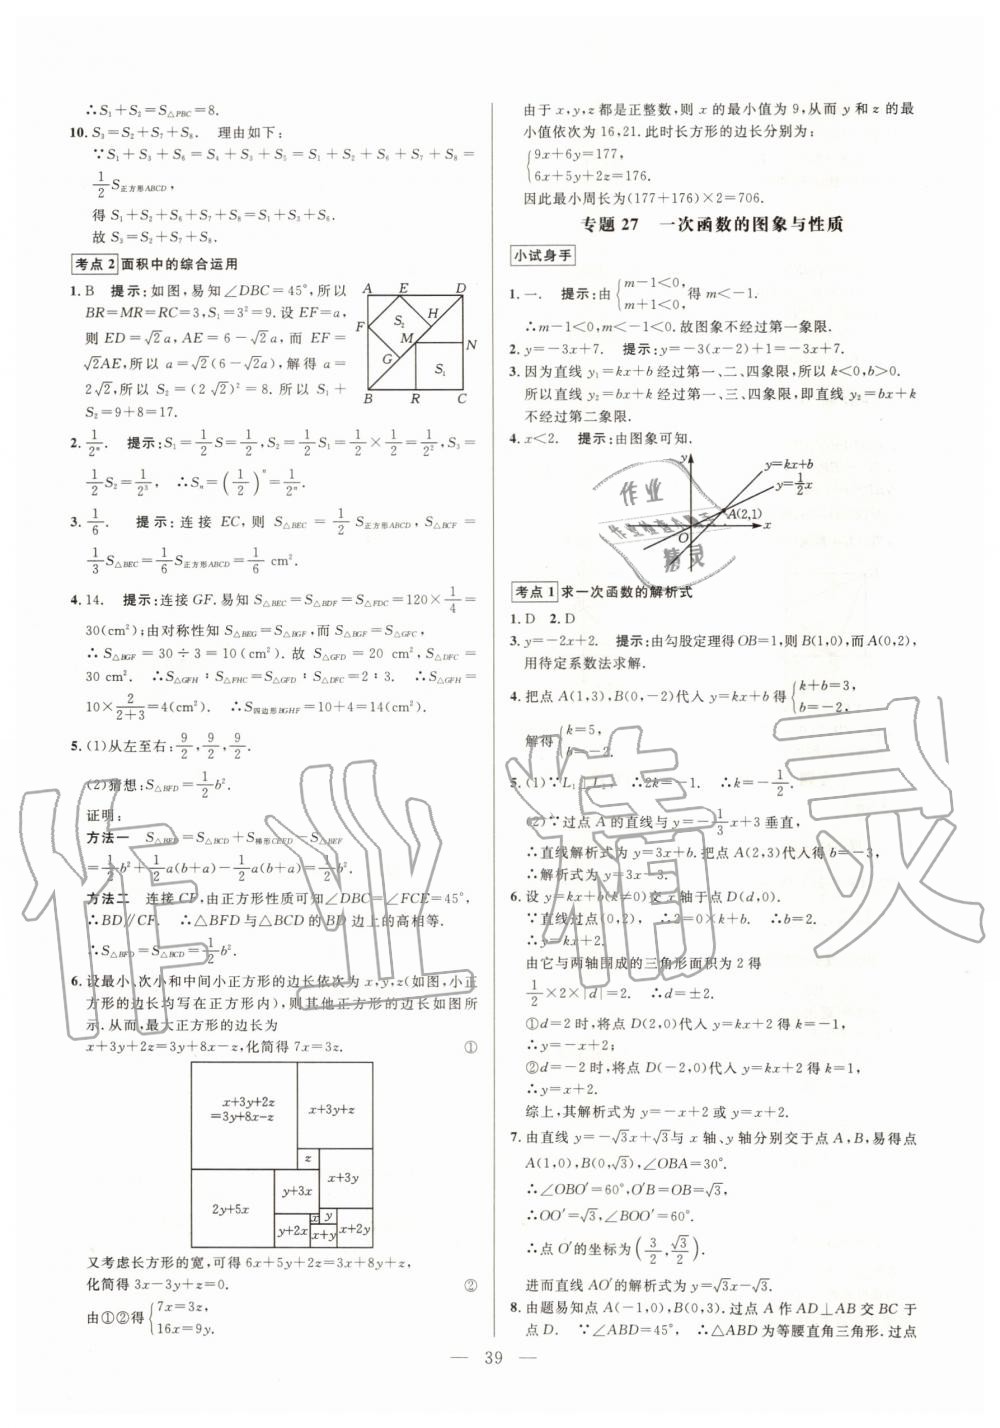 ∴S₁+S₂=S△PBC=8.
10. S₃=S₂+S₇+S₈. 理由如下：
∵S₁+S₃+S₆=S₁+S₄+S₃+S₅=S₁+S₂+S₆+S₇+S₈=
1/2 S正方形ABCD，
得 S₁+S₂+S₆+S₇+S₈=S₁+S₆+S₃.
故 S₃=S₂+S₇+S₈.
考点 2 面积中的综合运用
1. B 提示：如图，易知∠DBC=45°，所以
BR=MR=RC=3，S₁=3²=9. 设 EF=a，
则 ED=√2a，AE=6-√2a，而 EF=
√2AE，所以 a=√2(6-√2a)，解得 a=
2√2，所以 S₂=(2√2)²=8. 所以 S₁+
S₂=9+8=17.
A E D
F S₂ H
M N
G S₁
B R C
2. 1/2ⁿ. 提示：S₁=1/2 S=1/2，S₂=1/2 S₁=1/2×1/2=1/2²，S₃=
1/2 S₂=1/2³， ∴Sₙ=(1/2)ⁿ=1/2ⁿ.
3. 1/6. 提示：连接 EC，则 S△BEC=1/2 S正方形ABCD，S△BCF=
1/3 S△BEC=1/6 S正方形ABCD=1/6 cm².
4. 14. 提示：连接 GF. 易知 S△BEC=S△BDF=S△FDC=120×1/4=
30(cm²)；由对称性知 S△BEG=S△BGF，而 S△BGF=S△GFC，
∴S△BGF=30÷3=10(cm²). 故 S△GFD=20 cm²，S△DFC=
30 cm². ∴S△GFH：S△FHC=S△GFD：S△DFC=2：3. ∴S△GFH=
10×2/(2+3)=4(cm²). ∴S四边形BGHF=10+4=14(cm²).
5. (1)从左至右：9/2，9/2，9/2.
(2)猜想：S△BFD=1/2 b².
证明：
方法一 S△BFD=S△BCD+S梯形CEFD-S△BEF
=1/2 b²+1/2 a(b+a)-1/2 a(b+a)=1/2 b².
方法二 连接 CF，由正方形性质可知∠DBC=∠FCE=45°，
∴BD∥CF. ∴△BFD 与△BCD 的 BD 边上的高相等.
∴S△BFD=S△BCD=1/2 b².
6. 设最小、次小和中间小正方形的边长依次为 x，y，z(如图，小正
方形的边长均写在正方形内)，则其他正方形的边长如图所
示. 从而，最大正方形的边长为
x+3y+2z=3y+8x-z，化简得 7x=3z. ①
x+3y+2z
=3y+8x-z
x+3y+z
z
x+3y
2y+5x
y+3x
x y
y+2x
x+y
x+2y
又考虑长方形的宽，可得 6x+5y+2z=3x+8y+z，
化简得 3x-3y+z=0. ②
由①②得{7x=3z，
16x=9y.
由于 x，y，z 都是正整数，则 x 的最小值为 9，从而 y 和 z 的最
小值依次为 16，21. 此时长方形的边长分别为：
{9x+6y=177，
6x+5y+2z=176.
因此最小周长为(177+176)×2=706.
专题 27 一次函数的图象与性质
小试身手
1. 一. 提示：由{m-1<0，m+1<0，得 m<-1.
∴m-1<0，m<-1<0. 故图象不经过第一象限.
2. y=-3x+7. 提示：y=-3(x-2)+1=-3x+7.
3. 因为直线 y₁=kx+b 经过第一、二、四象限，所以 k<0，b>0.
所以直线 y₂=bx+k 经过第一、三、四象限，即直线 y₂=bx+k
不经过第二象限.
4. x<2. 提示：由图象可知.
y
y=kx+b
y=1/2 x
A(2,1)
O x
考点 1 求一次函数的解析式
1. D 2. D
3. y=-2x+2. 提示：由勾股定理得 OB=1，则 B(1,0)，而 A(0,2)，
用待定系数法求解.
4. 把点 A(1,3)，B(0，-2)代入 y=kx+b 得{k+b=3，b=-2，
解得{k=5，b=-2.
5. (1)∵L₁⊥L₂， ∴2k=-1. ∴k=-1/2.
(2)∵过点 A 的直线与 y=-1/3 x+3 垂直，
∴直线解析式为 y=3x+b. 把点 A(2,3)代入得 b=-3.
∴解析式为 y=3x-3.
6. 设 y=kx+b(k≠0)交 x 轴于点 D(d,0).
∵直线过点(0,2)， ∴2=0×k+b. ∴b=2.
∴y=kx+2.
由它与两轴围成的三角形面积为 2 得
1/2×2×|d|=2. ∴d=±2.
①d=2 时，将点 D(2,0)代入 y=kx+2 得 k=-1，
∴y=-x+2；
②d=-2 时，将点 D(-2,0)代入 y=kx+2 得 k=1，
∴y=x+2.
综上，其解析式为 y=-x+2 或 y=x+2.
7. 由直线 y=-√3x+√3与 x 轴、y 轴分别交于点 A，B，易得点
A(1,0)，B(0,√3)，∠OBA=30°.
∴∠OBO′=60°，O′B=OB=√3，
∴OO′=√3，∠BOO′=60°.
∴点 O′的坐标为(3/2，√3/2).
进而直线 AO′的解析式为 y=√3x-√3.
8. 由题易知点 A(-1,0)，B(0,3). 过点 A 作 AD⊥AB 交 BC 于
点 D. ∵∠ABD=45°， ∴△ABD 为等腰直角三角形. 过点
— 39 —
作业
作业检查小助手
精灵
作业精灵